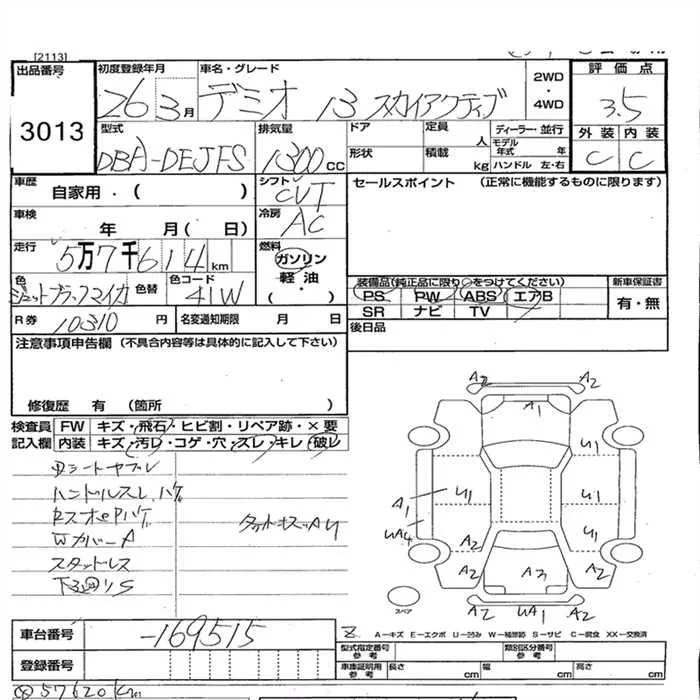 [2113]
出品番号 初度登録年月 車名・グレード 2WD 評価点
3013 26 3月 デミオ 13 スカイアクティブ ・4WD 3.5
型式 排気量 ドア 定員 人 ディーラー・並行 外装 内装
DBA-DEJFS 1300cc 形状 積載 kg モデル年式 年 ハンドル 左・右 C C
車歴 自家用・( ) シフト CVT セールスポイント (正常に機能するものに限ります)
車検 年 月( 日) 冷房 AC
走行 5万7千614km 燃料 ガソリン
軽油
・
( )
色 ジェットブラックマイカ 色替 色コード 41W
装備品(純正品に限り○をつけてください) 新車保証書
PS PW ABS エアB 有・無
SR ナビ TV
R券 10310円 名変通知期限 月 日 後日品
注意事項申告欄 (不具合内容等は具体的に記入して下さい)
修復歴 有 (箇所 )
検査員 FW キズ・飛石・ヒビ割・リペア跡・×要
記入欄 内装 キズ・汚レ・コゲ・穴・スレ・キレ・破レ
ハンドルスレ、ハゲ
Wカバー A
スタットレス
A2 A2
A1
U1
A1 U1 U1
UA4 U1
A2
A2 A3 A2
スペア
A2 UA1 A2
A-キズ E-エクボ U-凹み W-補修跡 S-サビ C-腐食 XX-交換済
車台番号 -169515 型式指定番号 参考 類別区分番号 参考
登録番号 車庫証明用 参考 長さ cm 幅 cm 高さ cm
57620km